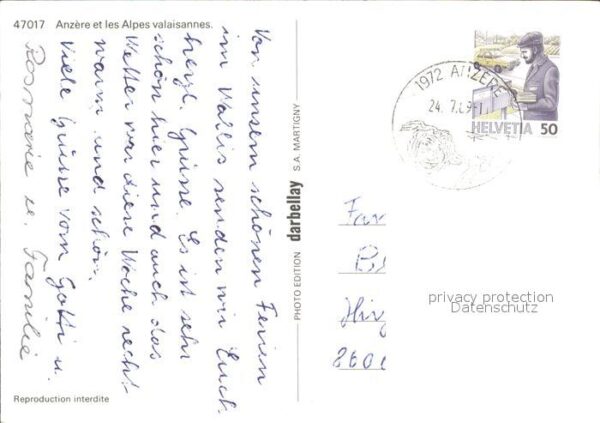 47017 Anzère et les Alpes valaisannes.
Von unsern schönen Ferien
im Wallis senden wir Euch
herzl. Grüsse. Es ist sehr
schön hier und auch das
Wetter war diese Woche recht
warm und schön.
Viele Grüsse vom Gotti u.
Rosmarie u. Familie
Reproduction interdite
PHOTO EDITION darbellay S.A. MARTIGNY
1972 ANZÈRE
HELVETIA 50
Fam
privacy protection
Datenschutz